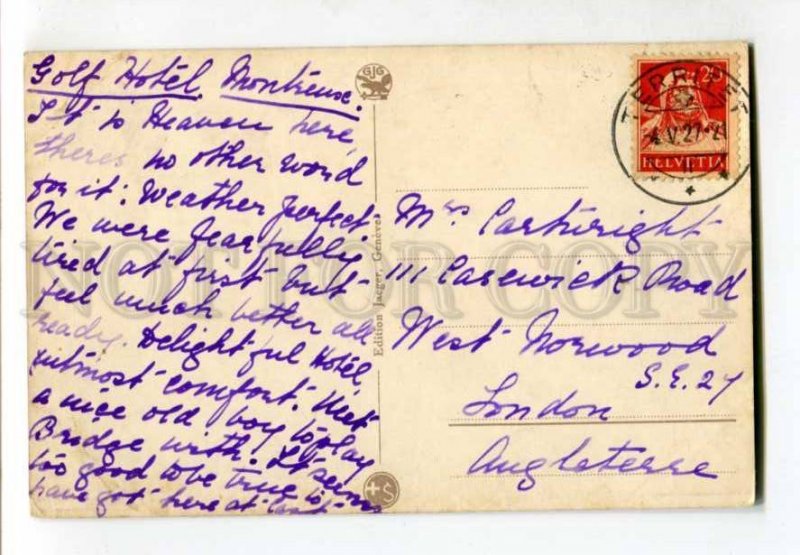 Golf Hotel Montreux.
It is Heaven here,
theres no other word
for it. Weather perfect.
We were fearfully
tired at first but
feel much better all
ready. Delightful Hotel,
utmost comfort. Met
a nice old boy to play
Bridge with. It seems
too good to be true to
have got here at last
GJG
Edition Jaeger, Genève
+S
20
HELVETIA
TERRITET
4.V.27-21
Mrs Cartwright
111 Casewick Road
West Norwood
S.E.27
London
Angleterre
NOT FOR COPY